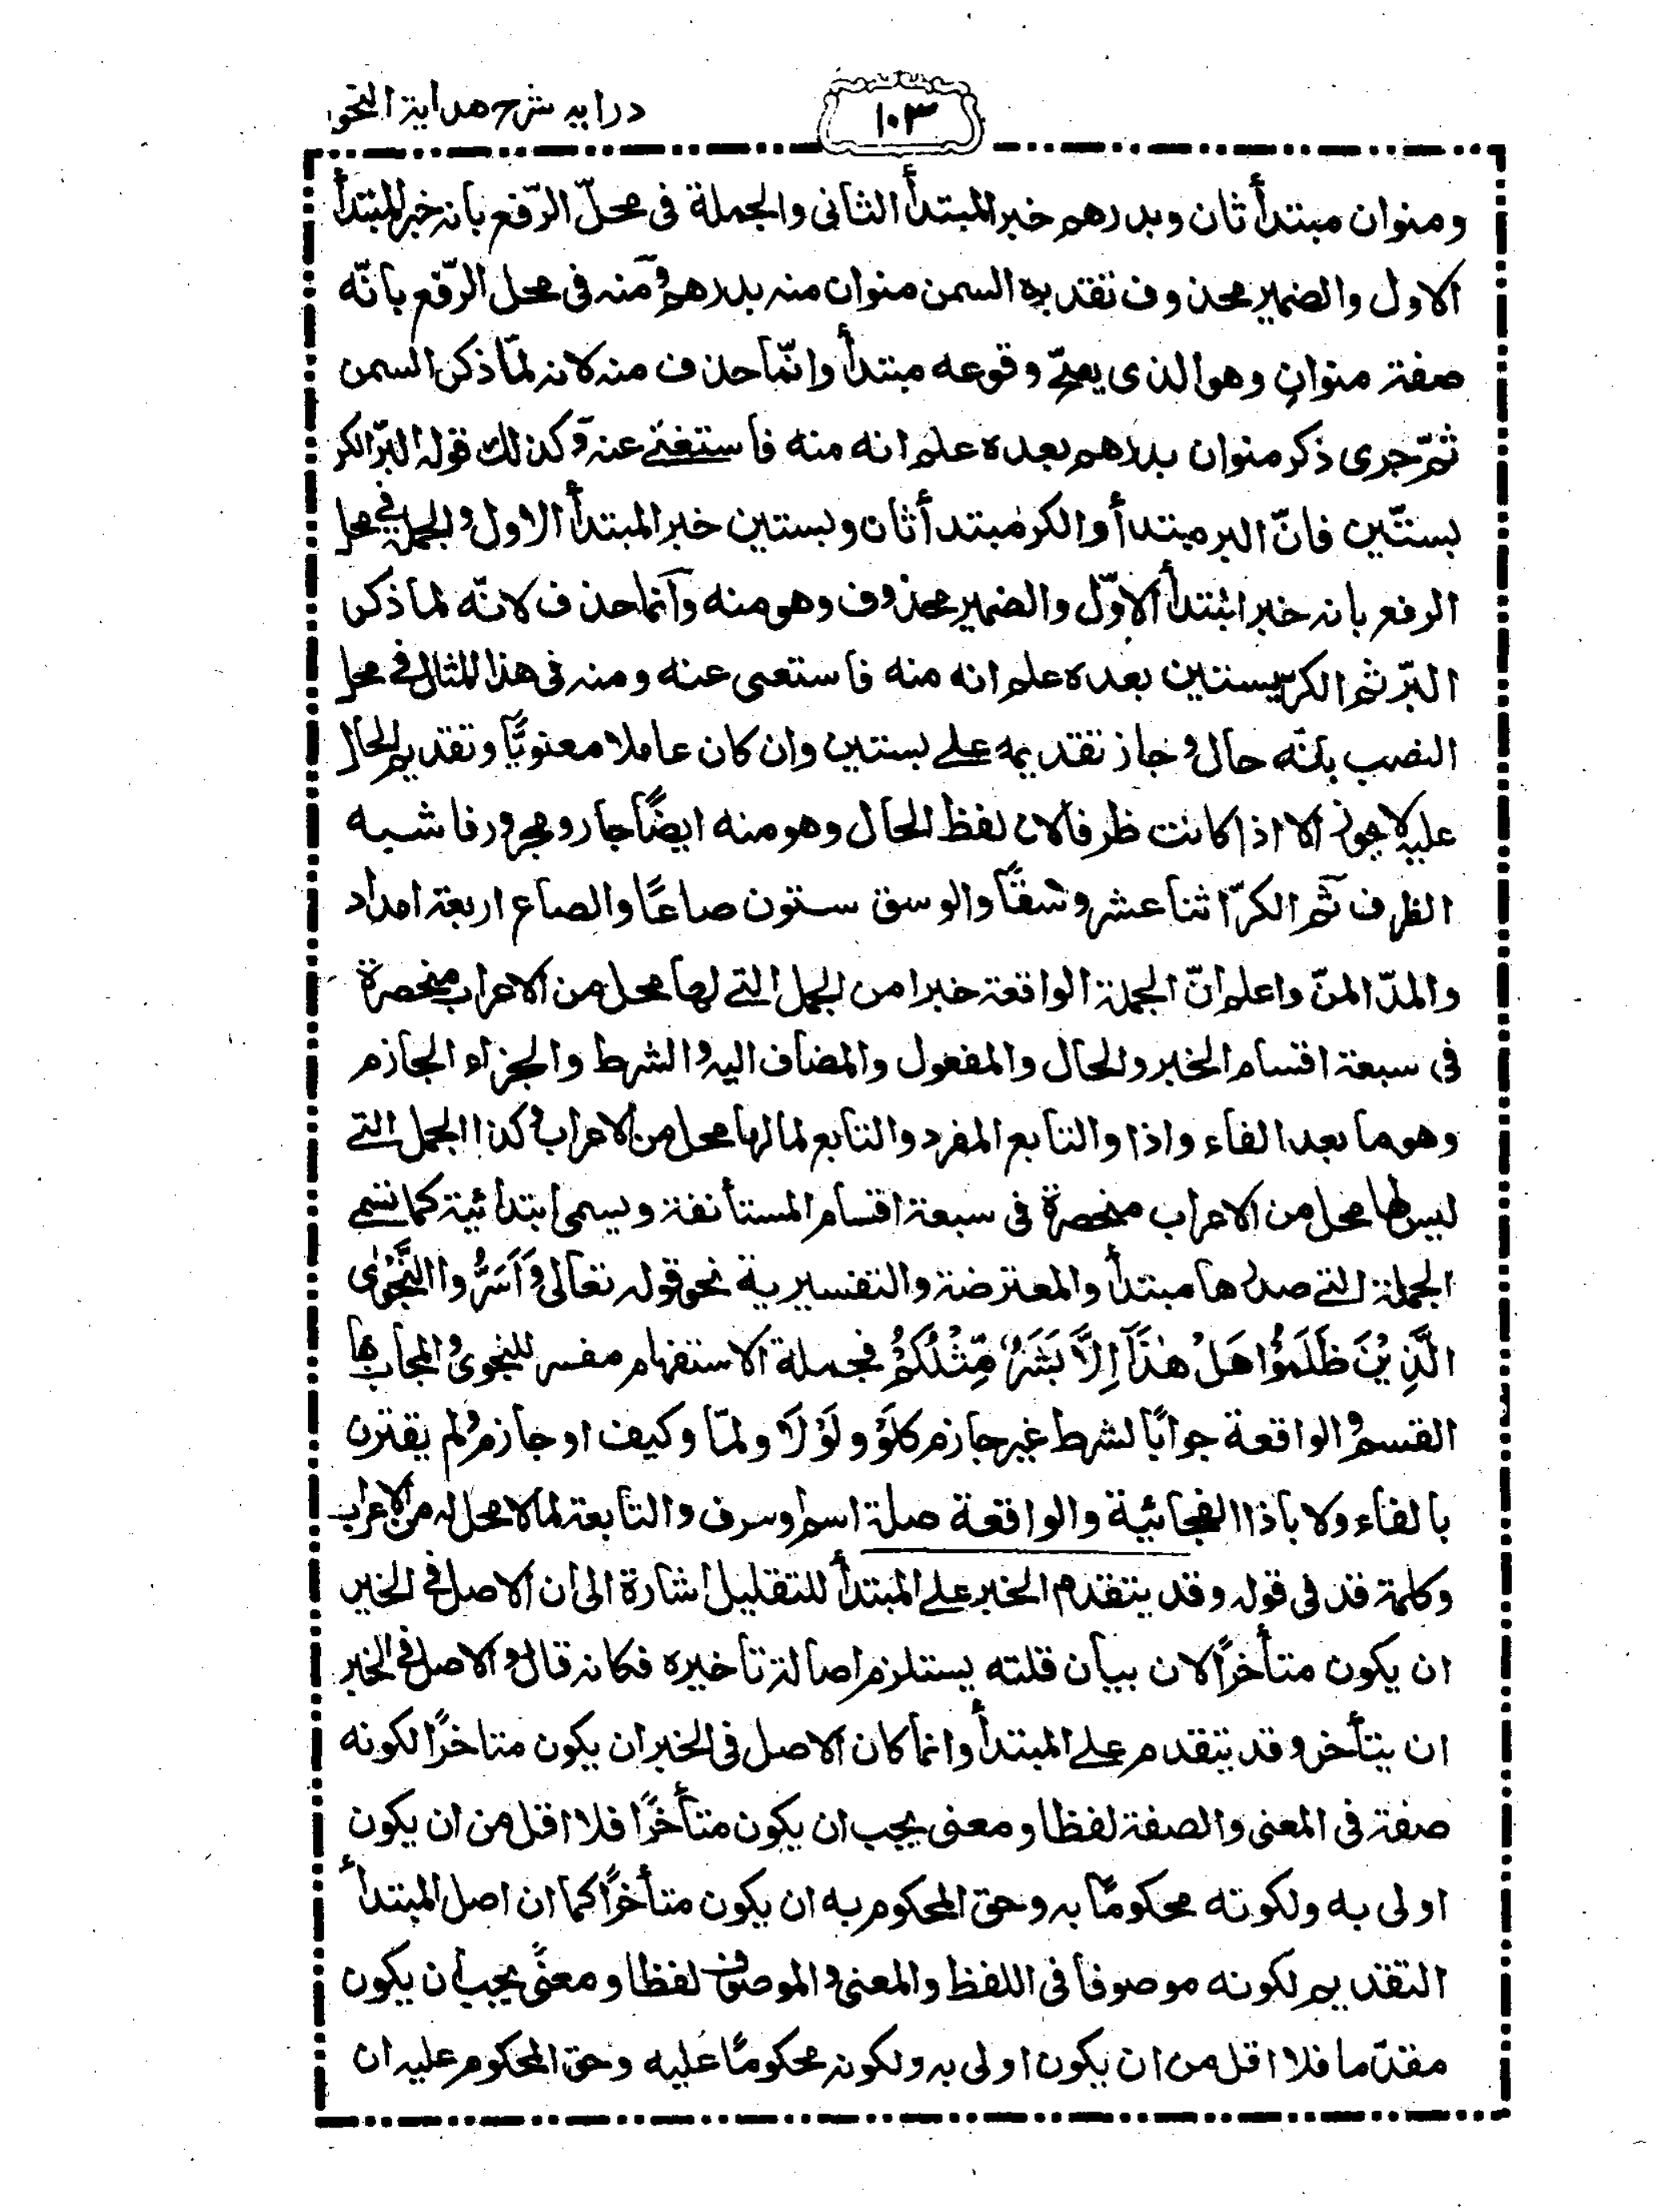 درايه شرح هداية النحو
١٠٣
ومنوان مبتدأ ثان وبدرهم خبر المبتدأ الثانى والجملة فى محلّ الرّفع بانه خبر المبتدأ
الاول والضمير محذوف تقديره السمن منوان منه بدرهم ومنه فى محل الرّفع بانّه
صفة منوانِ وهو الذى يصحّ وقوعه مبتدأ وانّما حذف منه لانه لمّا ذكر السمن
ثمّ جرى ذكر منوان بدرهم بعده علم انه منه فاستغنے عنه وكذلك قوله البرّ الكر
بستّين فانّ البر مبتدأ والكر مبتدأ ثان وبستين خبر المبتدأ الاول والجملة فے محل
الرفع بانه خبر المبتدأ الاوّل والضمير محذوف وهو منه وانما حذف لانّه لما ذكر
البرّ ثم الكرّ بستين بعده علم انه منه فاستعى عنه ومنه فى هذا المثال فے محل
النصب بانّه حال وجاز تقديمه علے بستين وان كان عاملا معنويًّا وتقديم الحال
عليه لا يجوز الا اذا كانت ظرفا لان لفظ الحال وهو منه ايضًا جار ومجرور فاشبه
الظرف ثم الكرّ اثنا عشر وسقًا والوسق ستون صاعًا والصاع اربعة امداد
والمدّ المنّ واعلم انّ الجملة الواقعة خبرا من الجمل التے لها محل من الاعراب منحصرة
فى سبعة اقسام الخبر والحال والمفعول والمضاف اليه والشرط والجزاء الجازم
وهو ما بعد الفاء واذا والتابع المفرد والتابع لما لها محل من الاعراب وكذا الجمل التے
ليس لها محل من الاعراب منحصرة فى سبعة اقسام المستأنفة ويسمى ابتدائية كما تسمے
الجملة التے صدرها مبتدأ والمعترضة والتفسيرية نحو قوله تعالى وَاَسَرُّوا النَّجْوٰى
الَّذِيْنَ ظَلَمُوْا هَلْ هٰذَآ اِلَّا بَشَرٌ مِّثْلُكُمْ فجملة الاستفهام مفسر للنجوى والمجاب بها
القسم والواقعة جوابًا لشرط غير جازم كلَوْ ولَوْلَا ولمّا وكيف او جازم ولم يقترن
بالفاء ولا باذا الفجائية والواقعة صلة اسم او سرف والتابعة لما لا محل له من الاعراب
وكلمة قد فى قوله وقد يتقدم الخبر علے المبتدأ للتقليل اشارة الى ان الاصل فے الخبر
ان يكون متأخرًا لان بيان قلته يستلزم اصالة تأخيره فكانه قال والاصل فے الخبر
ان يتأخر وقد يتقدم علے المبتدأ وانما كان الاصل فى الخبر ان يكون متاخرًا لكونه
صفة فى المعنى والصفة لفظا ومعنى يجب ان يكون متأخرًا فلا اقل من ان يكون
اولى به ولكونه محكومًا به وحق المحكوم به ان يكون متأخرًا كما ان اصل المبتدأ
التقديم لكونه موصوفا فى اللفظ والمعنى والموصوف لفظا ومعنًى يجب ان يكون
مقدّما فلا اقل من ان يكون اولى به ولكونه محكومًا عليه وحق المحكوم عليه ان